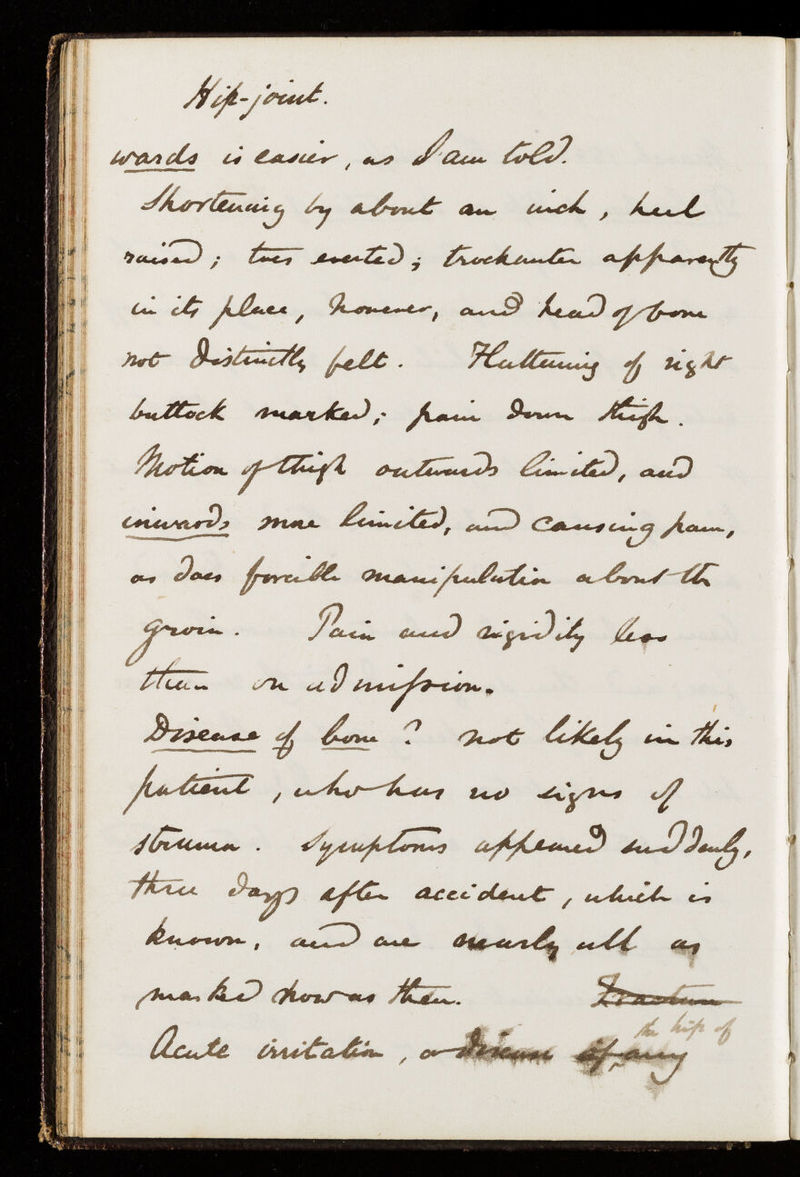 Hip-joint.
wards is easier, as I am told.
Shortening by about an inch, heel
raised; toes everted; trochanter apparently
in its place, however, and head of bone
not distinctly felt. Flattening of right
buttock marked; pain down thigh.
Motion of thigh outwards limited, and
inwards more limited, and causing pain,
as does forcible manipulation about the
groin. Pain and rigidity less
than on admission.
Disease of bone? not likely in this
patient, who has no signs of
struma. Symptoms appeared suddenly,
three days after accident, which is
known, and are nearly all as
marked now as then. Fracture
the hip of
Acute irritation, or disease of any